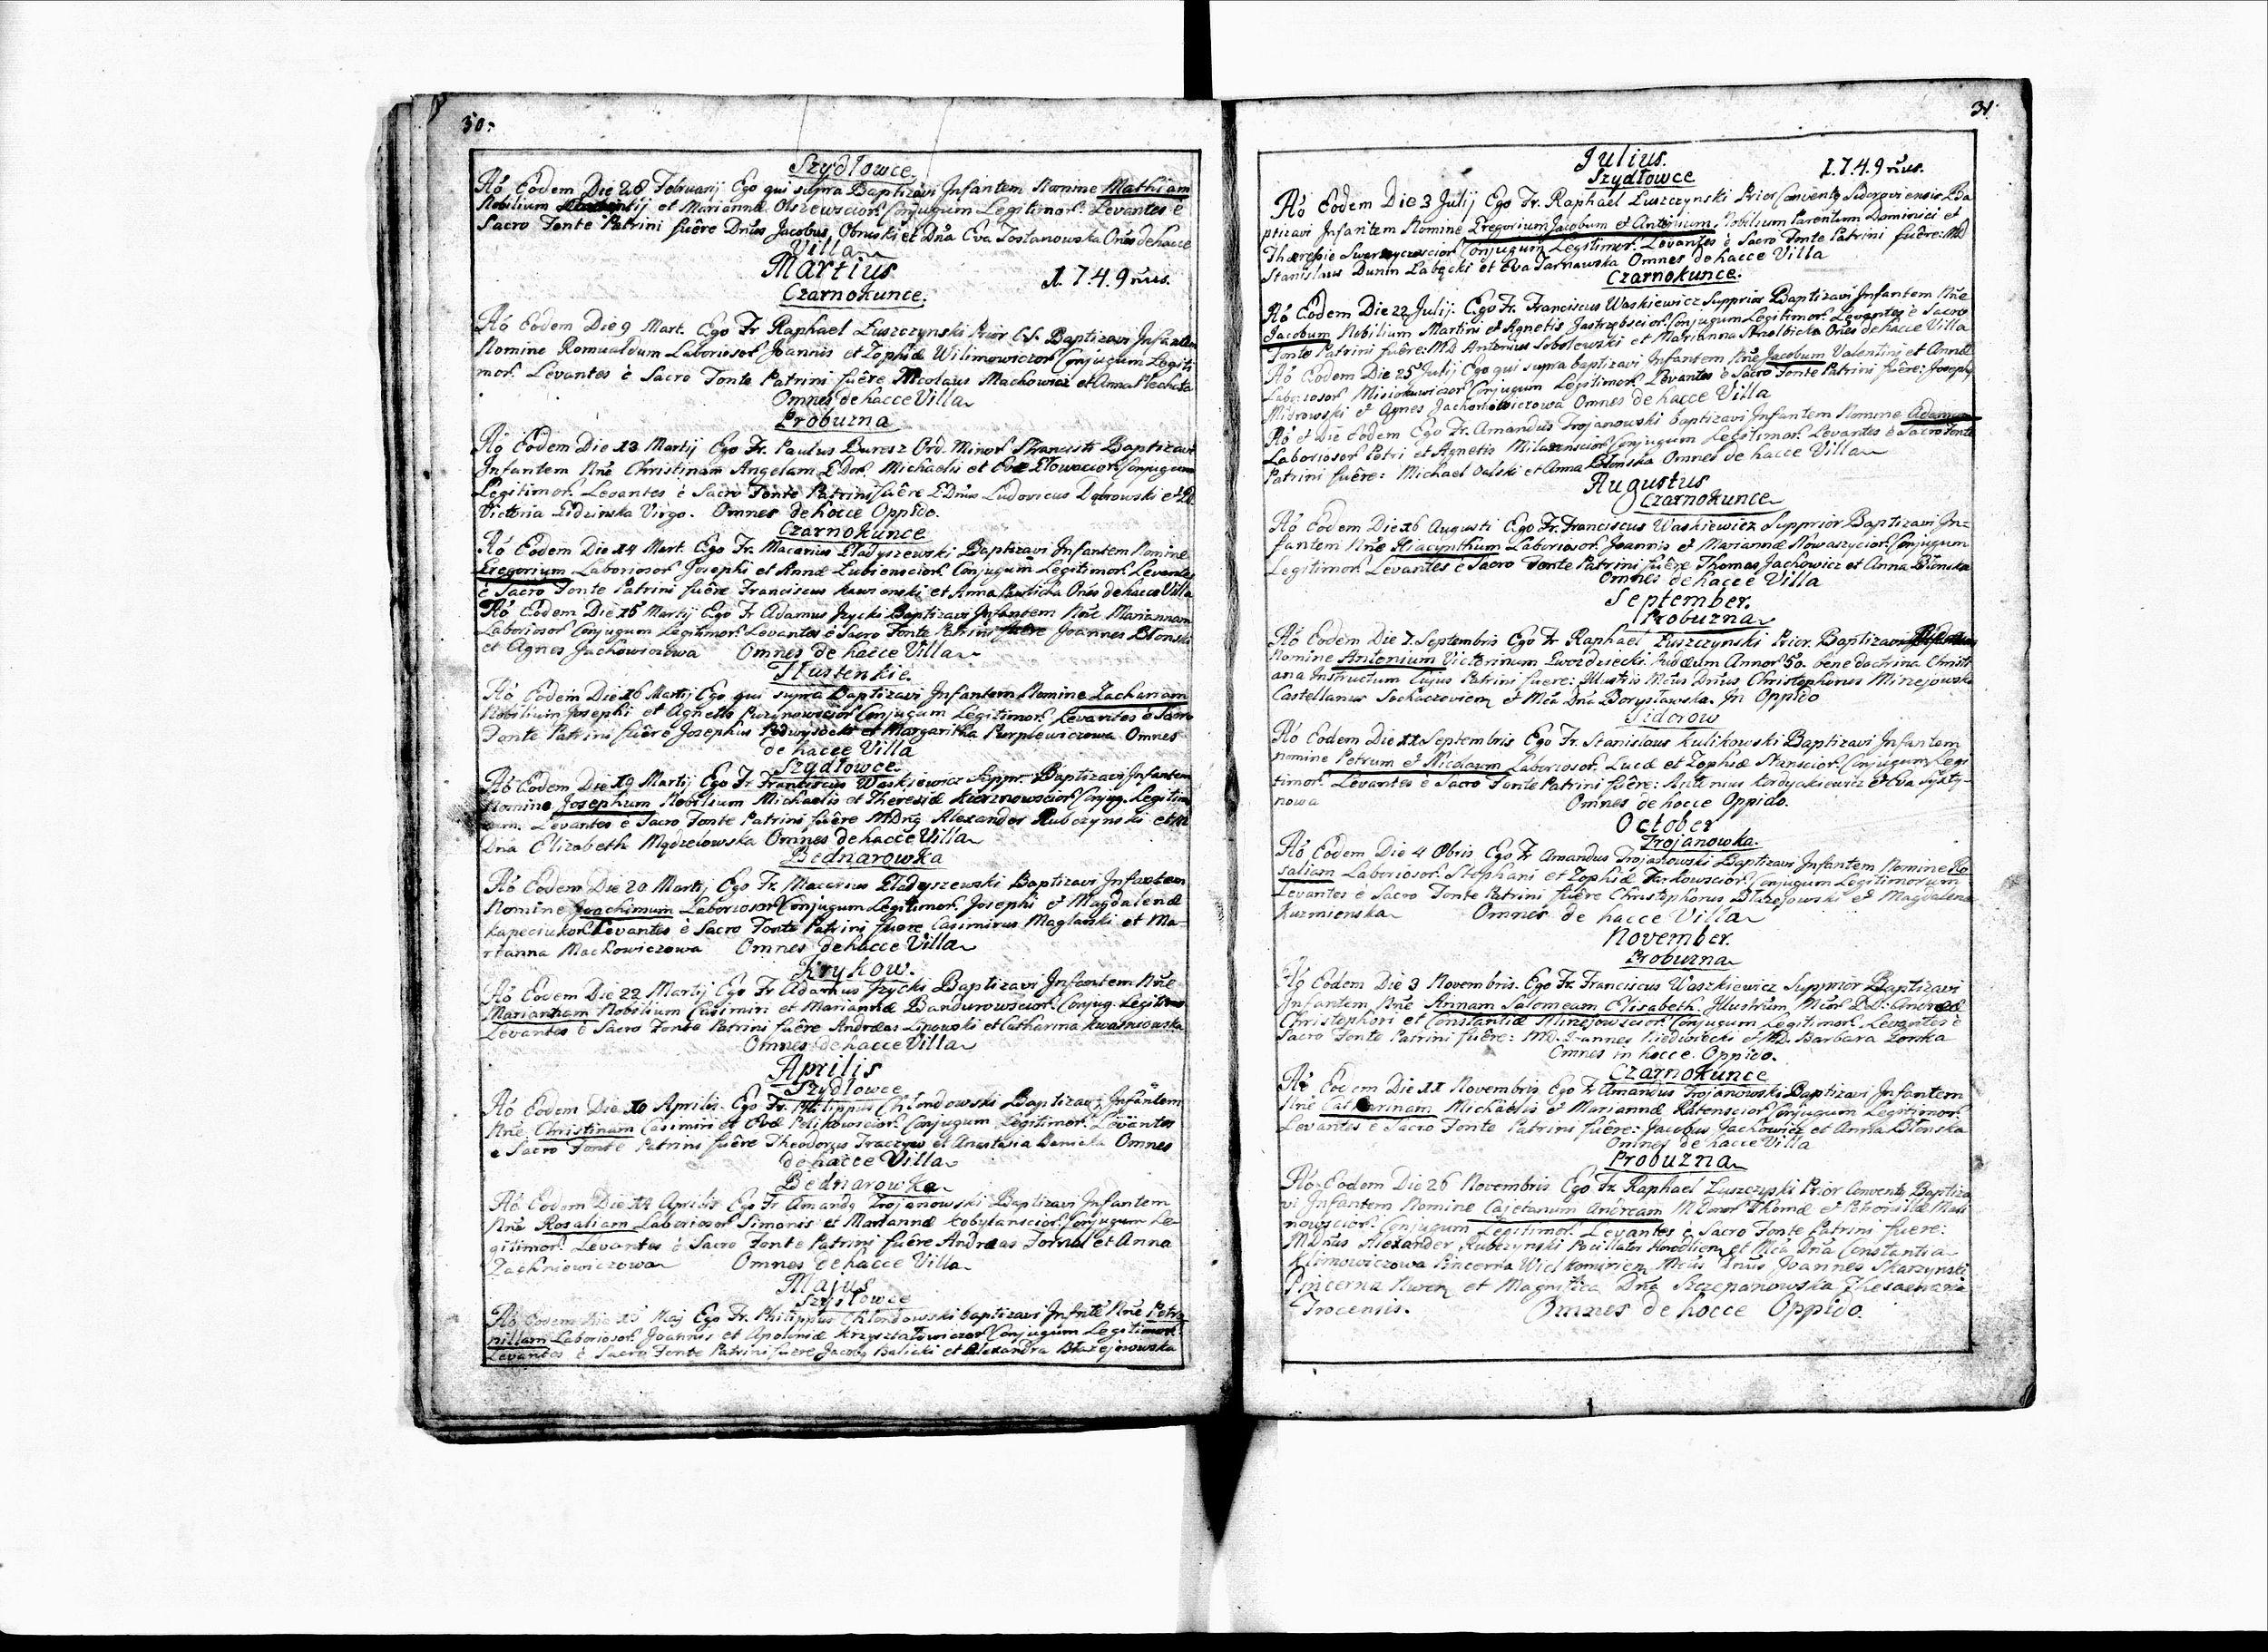 30.
Szydłowce.
Aó Eodem Die 28 Februarij Ego qui supra Baptizavi Infantem Nomine Mathiam
Nobilium et Mariannæ Olszewscior. Conjugum Legitimor. Levantes è
Sacro Fonte Patrini fuêre Dnus Jacobus Obruski et Dña Eva Tostanowska Oñes de hacce
Villa
Martius 1.7.4.9 nus.
Czarnokunce.
Aó Eodem Die 9 Mart. Ego Fr Raphael Łuszczynski Prior C.S. Baptizavi Infantem
Nomine Romualdum Laboriosor. Joannis et Zophiæ Wilimowiczor. Conjugum Legiti
mor. Levantes è Sacro Fonte Patrini fuêre Nicolaus Machowicz et Anna Plechata
Omnes de hacce Villa
Probuzna
Aó Eodem Die 13 Martij Ego Fr. Paulus Buresz Ord. Minor. S Francisci Baptizavi
Infantem Nñe Christinam Angelam GDor. Michaelis et Evæ Głowacior. Conjugum
Legitimor. Levantes è Sacro Fonte Patrini fuêre GDnus Ludovicus Dąbrowski et
Victoria Lidzinska Virgo. Omnes de hocce Oppido.
Czarnokunce
Aó Eodem Die 14 Mart. Ego Fr. Macarius Gładyszewski Baptizavi Infantem Nomine
Gregorium Laboriosor. Josephi et Annæ Lubienscior. Conjugum Legitimor. Levantes
è Sacro Fonte Patrini fuêre Franciscus et Anna Pawlicka Oñes de hacce Villa
Aó Eodem Die 15 Martij Ego Fr Adamus Jzycki Baptizavi Infantem Nñe Mariannam
Laboriosor. Conjugum Legitimor. Levantes è Sacro Fonte Patrini fuêre Joannes Błonski
et Agnes Jachowiczowa Omnes de hacce Villa
Tłustenkie.
Aó Eodem Die 16 Martij Ego qui supra Baptizavi Infantem Nomine Zachariam
Nobilium Josephi et Agnetis Puzynowscior. Conjugum Legitimor. Levantes è Sacro
Fonte Patrini fuêre Josephus Podwysocki et Margaritha Purplewiczowa Omnes
de hacce Villa
Szydłowce.
Aó Eodem Die 19 Martij Ego Fr Franciscus Waskiewicz Suppr. Baptizavi Infantem
Nomine Josephum Nobilium Michaelis et Theresiæ Kierznowscior. Conjug. Legitim
rum. Levantes è Sacro Fonte Patrini fuêre MDnq Alexander Rubczynski et M
Dna Elizabeth Mądzelowska Omnes de hacce Villa
Bednarowka
Aó Eodem Die 20 Martij Ego Fr. Macarius Gładyszewski Baptizavi Infantem
Nomine Joachimum Laboriosor. Conjugum Legitimor. Josephi et Magdalenæ
Kapeciukor. Levantes è Sacro Fonte Patrini fuere Casimirus Maglarski et Ma-
rianna Machowiczowa Omnes de hacce Villa
Krykow.
Aó Eodem Die 22 Martij Ego Fr Adamus Jzycki Baptizavi Infantem Nñe
Mariannam Nobilium Casimiri et Mariannæ Bandurowscior. Conjug. Legitimo
Levantes è Sacro Fonte Patrini fuêre Andreas Lipowski et Catharina Kwasniowska
Omnes de hacce Villa
Aprilis
Szydłowce
Aó Eodem Die 10 Aprilis. Ego Fr. Philippus Chlondowski Baptizavi Infantem
Nñe Christinam Casimiri et Evæ Pelikowscior. Conjugum Legitimor. Levantes
è Sacro Fonte Patrini fuêre Theodorus Traczyw et Anastasia Danicka Omnes
de hacce Villa
Bednarowka
Aó Eodem Die 14 Aprilis Ego Fr Amandq Trojanowski Baptizavi Infantem
Nñe Rosaliam Laboriosor. Simonis et Mariannæ Kobylanscior. Conjugum Le-
gitimor. Levantes è Sacro Fonte Patrini fuêre Andreas Fornal et Anna
Zachniewiczowa Omnes de hacce Villa
Majus
Szydłowce
Aó Eodem Die 13 Maj Ego Fr. Philippus Chlondowski baptizavi Infnte Nñe Petro
nillam Laboriosor. Joannis et Apoloniæ Krzysztalowiczor. Conjugum Legitimor.
Levantes è Sacro Fonte Patrini fuere Jacobq Balicki et Alexandra Błazejnowska
31
Julius. 1.7.4.9 nus.
Szydłowce
Aó Eodem Die 3 Julij Ego Fr. Raphael Łuszczynski Prior Conventq Sidoroviensis Ba
ptizavi Infantem Nomine Gregorium Jacobum et Antonium. Nobilium Parentum Dominici et
Theresiæ Conjugum Legitimor. Levantes è Sacro Fonte Patrini fuêre: MD
Stanislaus Dunin Łabęcki et Eva Tarnawska Omnes de hacce Villa
Czarnokunce.
Aó Eodem Die 22 Julij. Ego Fr. Franciscus Waskiewicz Supprior Baptizavi Infantem Nñe
Jacobum Nobilium Martini et Agnetis Jastrzębscior. Conjugum Legitimor. Levantes è Sacro
Fonte Patrini fuêre: MD Antonius Sobolewski et Marianna Strzalbicka Oñes de hacce Villa
Aó Eodem Die 25 Julij Ego qui supra baptizavi Infantem Nñe Jacobum Valentini et Annæ
Laboriosor. Conjugum Legitimor. Levantes è Sacro Fonte Patrini fuêre: Josephq
Misrowski et Agnes Jachowiczowa Omnes de hacce Villa
Aó et Die Eodem Ego Fr. Amandus Trojanowski baptizavi Infantem Nomine Adamum
Laboriosor. Petri et Agnetis Milazenscior. Conjugum Legitimor. Levantes è Sacro Fonte
Patrini fuêre: Michael Oalski et Anna Błonska Omnes de hacce Villa
Augustus
Czarnokunce
Aó Eodem Die 16 Augusti Ego Fr. Franciscus Waskiewicz Supprior Baptizavi In=
fantem Nñe Hiacynthum Laboriosor. Joannis et Mariannæ Nowaszycior. Conjugum
Legitimor. Levantes è Sacro Fonte Patrini fuêre Thomas Jachowicz et Anna Błonska
Omnes de hacce Villa
September.
Probuzna
Aó Eodem Die 7. Septembris Ego Fr Raphael Łuszczynski Prior. Baptizavi
Nomine Antonium Victorinum Gwozdziecki. Judæum Annor. 50. bene doctrina Christi
ana Instructum Cujus Patrini fuere: Illustris Mcus Dnus Christophorus Minejowski
Castellanus Sochaczeviem et Mcá Dná Borysławska. In Oppido
Sidorow
Aó Eodem Die 11 Septembris Ego Fr. Stanislaus Kulikowski Baptizavi Infantem
nomine Petrum et Nicolaum Laboriosor. Lucæ et Zophiæ Conjugum Legi
timor. Levantes è Sacro Fonte Patrini fuêre: Antonius Kordyackiewicz et Eva Syxty-
nowa Omnes de hocce Oppido.
October
Trojanowka.
Aó Eodem Die 4 Obris Ego Fr Amandus Trojanowski Baptizavi Infantem Nomine Ro
saliam Laboriosor. Stephani et Zophiæ Tarkowscior. Conjugum Legitimorum
Levantes è Sacro Fonte Patrini fuêre Christophorus Błazejowski et Magdalena
Kuzmienska Omnes de hacce Villa
November.
Probuzna
Aó Eodem Die 3 Novembris. Ego Fr. Franciscus Waszkiewicz Supprior Baptizavi
Infantem Nñe Annam Salomeam Elisabeth. Illustrium Mcor. DD: Andreæ
Christophori et Constantiæ Minejowscior. Conjugum Legitimor. Levantes è
Sacro Fonte Patrini fuêre: MD. Joannes Niedwiecki et MD. Barbara Zonka
Omnes in hocce Oppido.
Czarnokunce
Aó Eodem Die 11 Novembris Ego Fr Amandus Trojanowski Baptizavi Infantem
Nñe Catharinam Michaelis et Mariannæ Ratenscior. Conjugum Legitimor.
Levantes è Sacro Fonte Patrini fuêre: Jacobus Jachowicz et Anna Błonska
Omnes de hacce Villa
Probuzna
Aó Eodem Die 26 Novembris Ego Fr. Raphael Łuszczyski Prior Conventq Baptiza
vi Infantem Nomine Cajetanum Andream M Dnor. Thomæ et Petronillæ Mali
nowscior. Conjugum Legitimor. Levantes è Sacro Fonte Patrini fuere:
MDnus Alexander Rubczynski Pocillator et Mcá Dñá Constantia
Klimowiczowa Pincerna Mcus Dnus Joannes Skarzynski
Pincerna et Magnifica Dná Szczepanowska Thesauraria
Trocensis. Omnes de hocce Oppido.